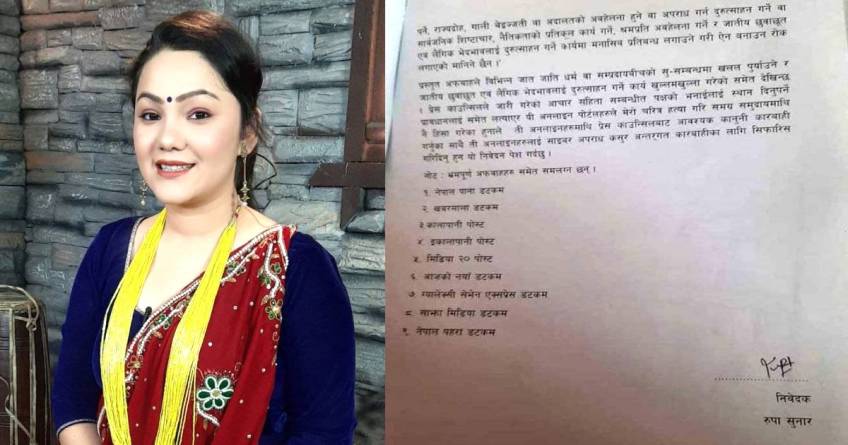 पर्ने, राज्यद्रोह, गाली बेइज्जती वा अदालतको अवहेलना हुने वा अपराध गर्न दुरुत्साहन गर्ने वा
सार्वजनिक शिष्टाचार, नैतिकताको प्रतिकूल कार्य गर्ने, श्रमप्रति अवहेलना गर्ने र जातीय छुवाछुत
एवं लैंगिक भेदभावलाई दुरुत्साहन गर्ने कार्यमा मनासिव प्रतिबन्ध लगाउने गरी ऐन बनाउन रोक
लगाएको मानिने छैन ।
प्रस्तुत अफवाहले विभिन्न जात जाति धर्म वा सम्प्रदायबीचको सु-सम्बन्धमा खलल पुर्याउने र
जातीय छुवाछुत एवं लैंगिक भेदभावलाई दुरुत्साहन गर्ने कार्य खुल्लमखुल्ला गरेको समेत देखिन्छ
। प्रेस काउन्सिलले जारी गरेको आचार संहिता सम्बन्धीत पक्षको भनाईलाई स्थान दिनुपर्ने
प्रावधानलाई समेत लत्याएर यी अनलाइन पोर्टलहरुले मेरो चरित्र हत्या गरि समग्र समुदायमाथि
नै हिंसा गरेका हुनाले ती अनलाइनहरुमाथि प्रेस काउन्सिलबाट आवश्यक कानुनी कारबाही
गर्नुका साथै ती अनलाइनहरुलाई साइबर अपराध कसुर अन्तरगत कारबाहीका लागि सिफारिस
गरिदिनु हुन यो निवेदन पेश गर्दछु ।
नोट : भ्रमपूर्ण अफवाहहरु समेत समलग्न छन् ।
१. नेपाल पाना डटकम
२. खबरमाला डटकम
३.कालापानी पोस्ट
४. इकालापानी पोस्ट
५. मिडिया २० पोस्ट
६. आजको नयाँ डटकम
७. ग्यालेक्सी सेभेन एक्सप्रेस डटकम
८. साझा मिडिया डटकम
९. नेपाल पहरा डटकम
निवेदक
रुपा सुनार